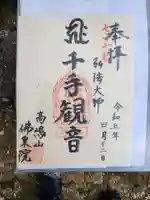 奉拝
弘法大師
令和五年
四月十二日
千手観音
高嶋山
佛東院